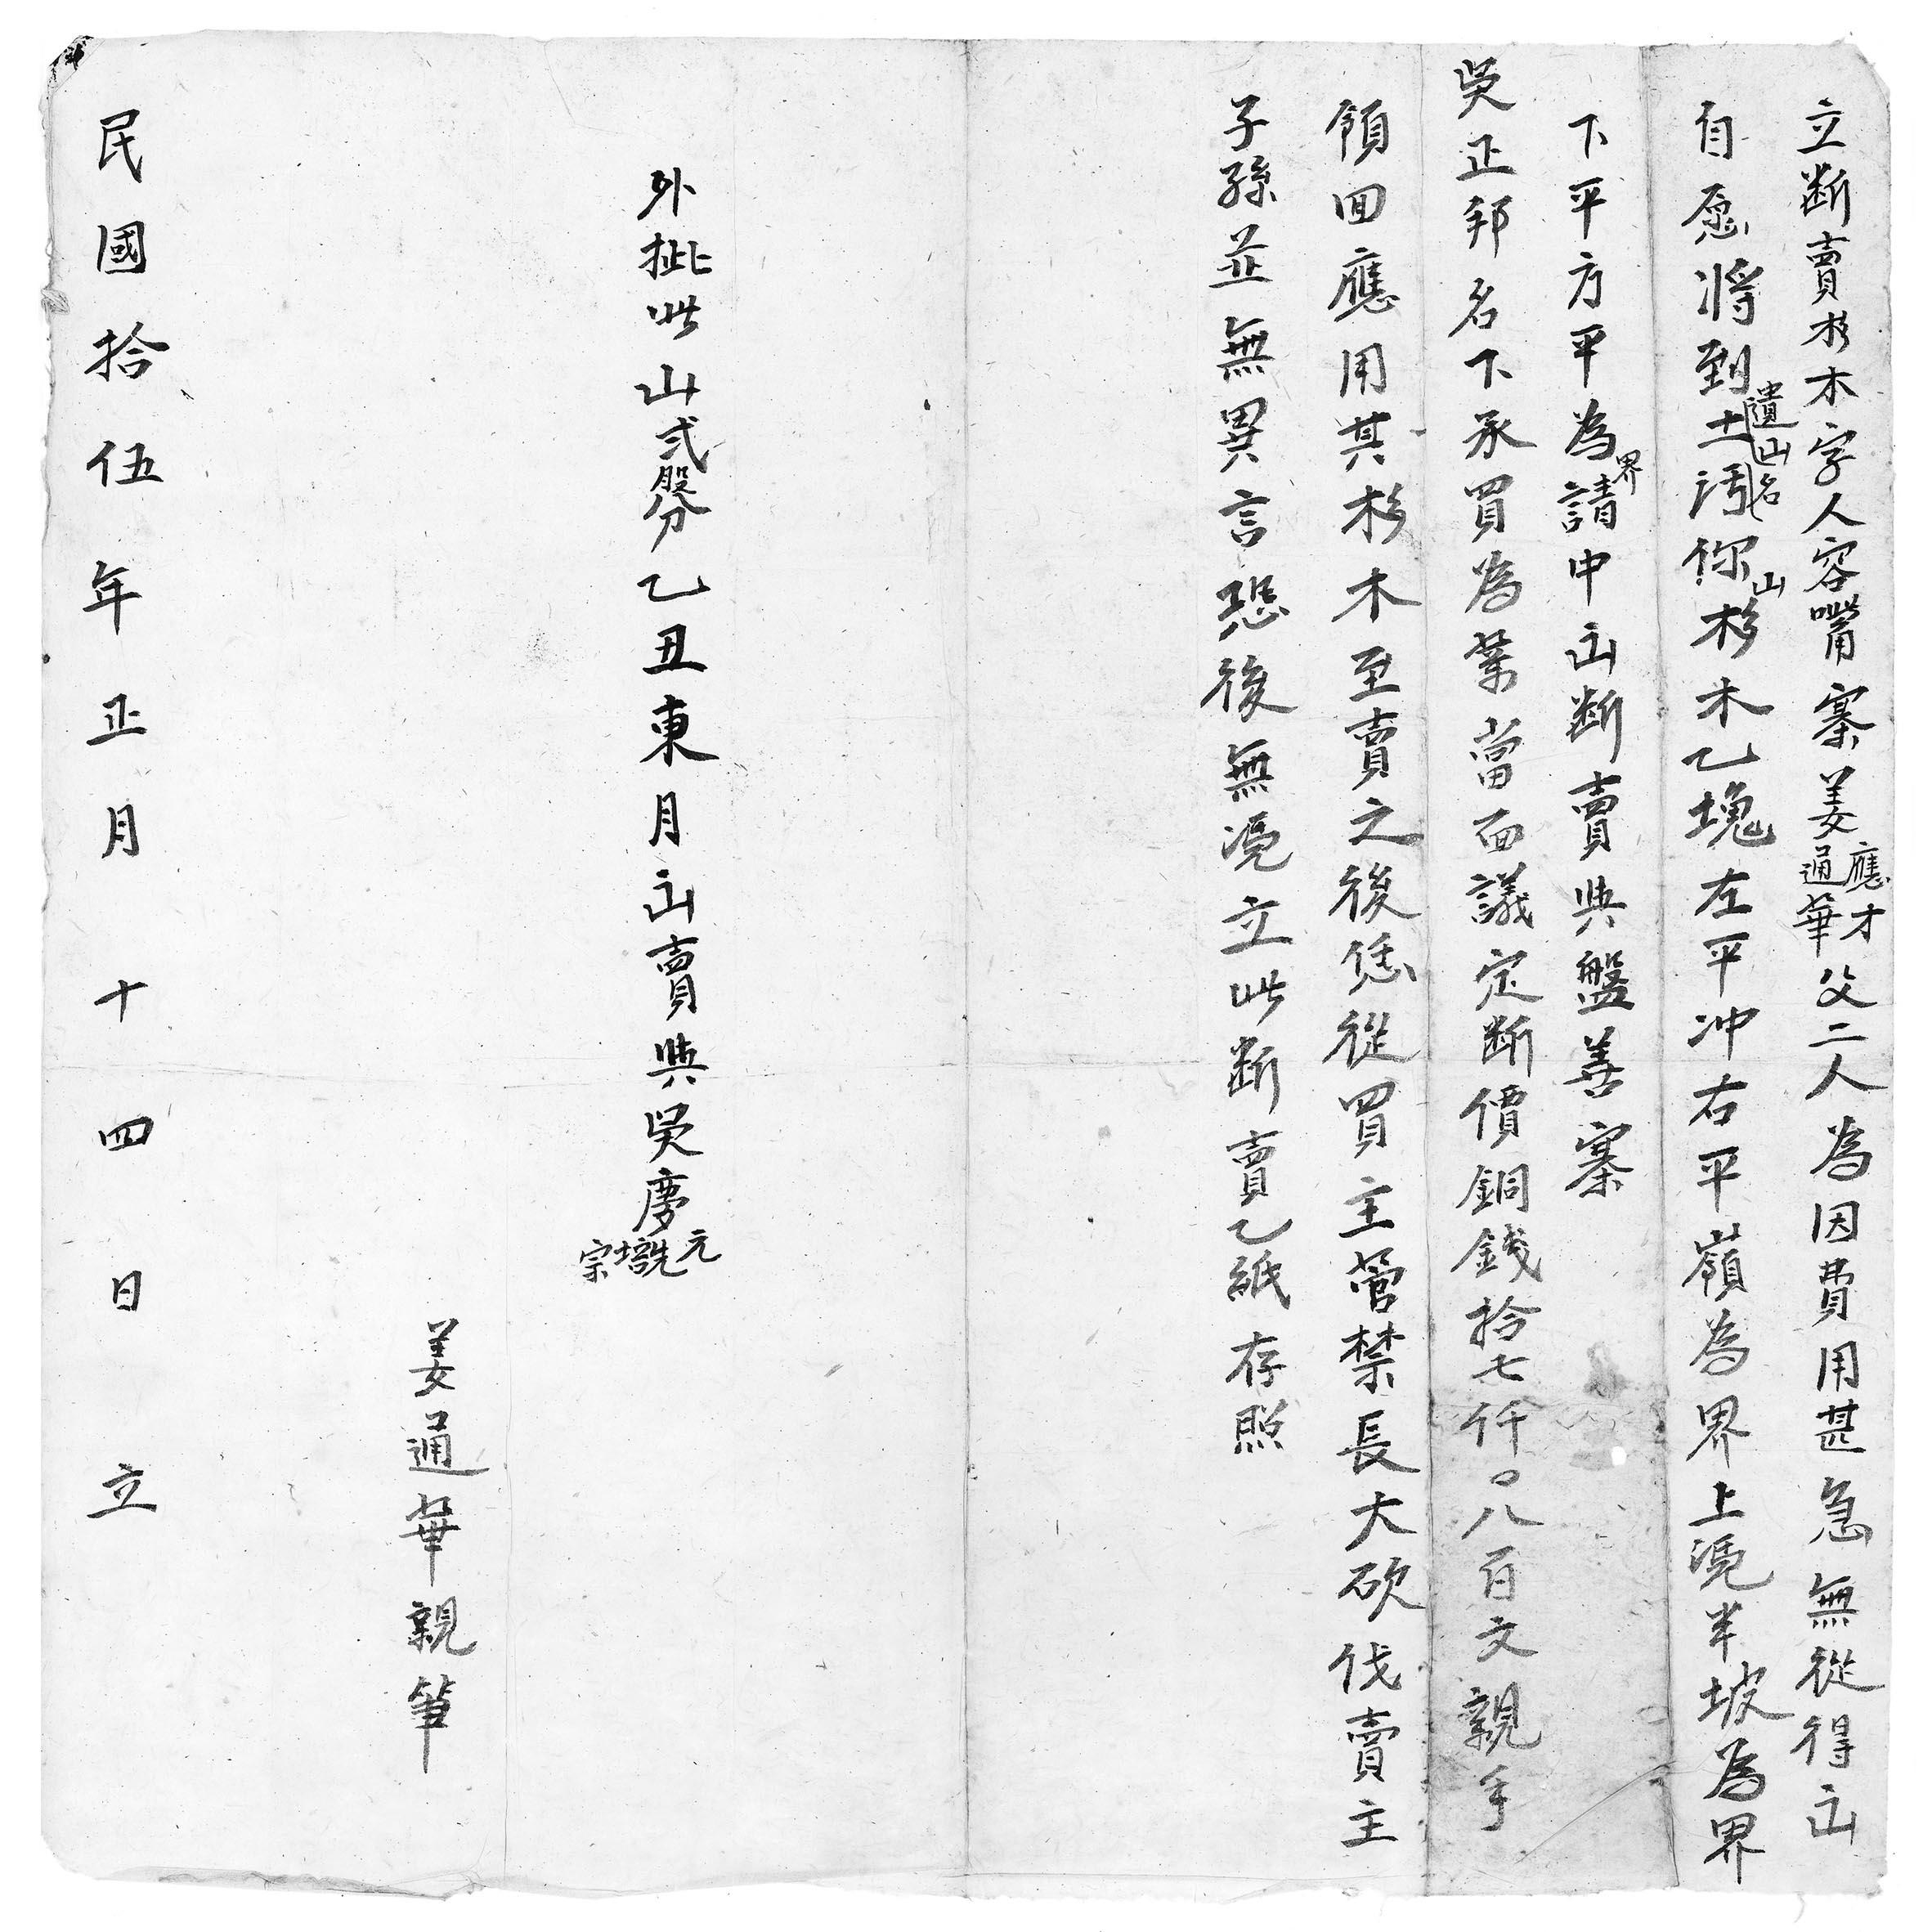 立断賣杉木字人容嘴寨姜應才通華父二人為因費用甚急無從得出
自愿將到土遺山名汚你山杉木乙塊左平冲右平嶺為界上凴半坡為界
下平方平為界請中出断賣與盤善寨
吳正邦名下承買為業當面議定断價銅錢拾七仟〇八百文親手
領回應用其杉木至賣之後恁從買主管禁長大砍伐賣主
子孫並無異言恐後無凴立此断賣乙紙存照
外批此山弍股分乙丑東月出賣與吳慶元
宗培
姜通華親筆
民國拾伍年正月十四日立